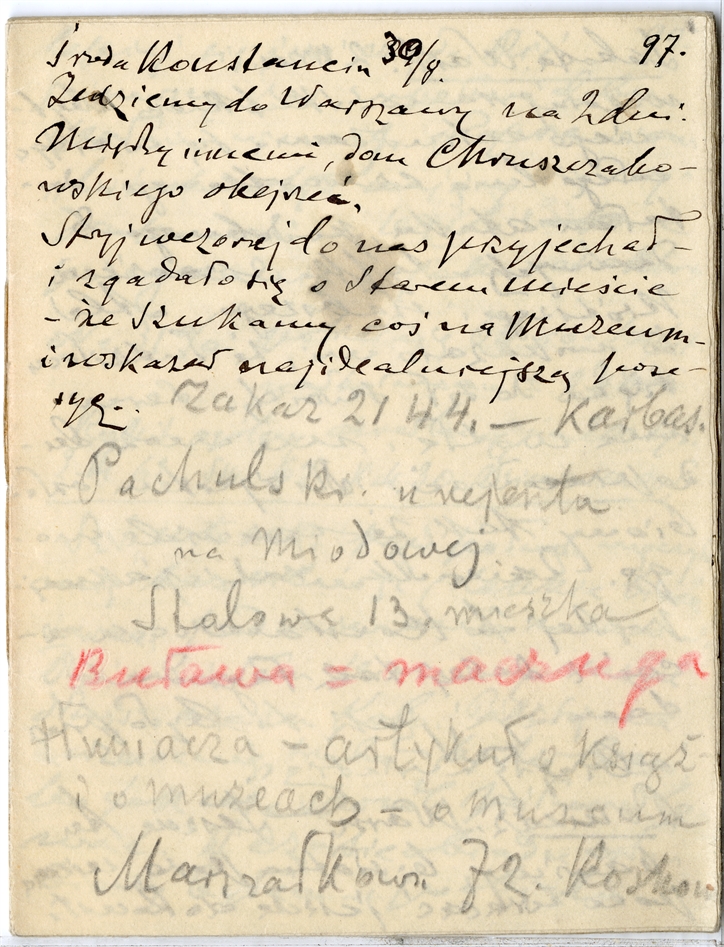 Środa Konstancin 30/8. 97.
Jedziemy do Warszawy na 2 dni.
Między innemi, dom Chruszczako-
wskiego obejrzeć.
Stryj wczoraj do nas przyjechał -
i zgadało się o Starem mieście
- że szukamy coś na Muzeum -
i wskazał najidealniejszą pozy-
cyę.
Zakaz 2144. -
Pachulski. u rejenta
na Miodowej
Stalowa 13. mieszka
Buława = maczuga
Tłumacza - artykuł o książ-
i o muzeach - o muzeum
Marszałkows 72.